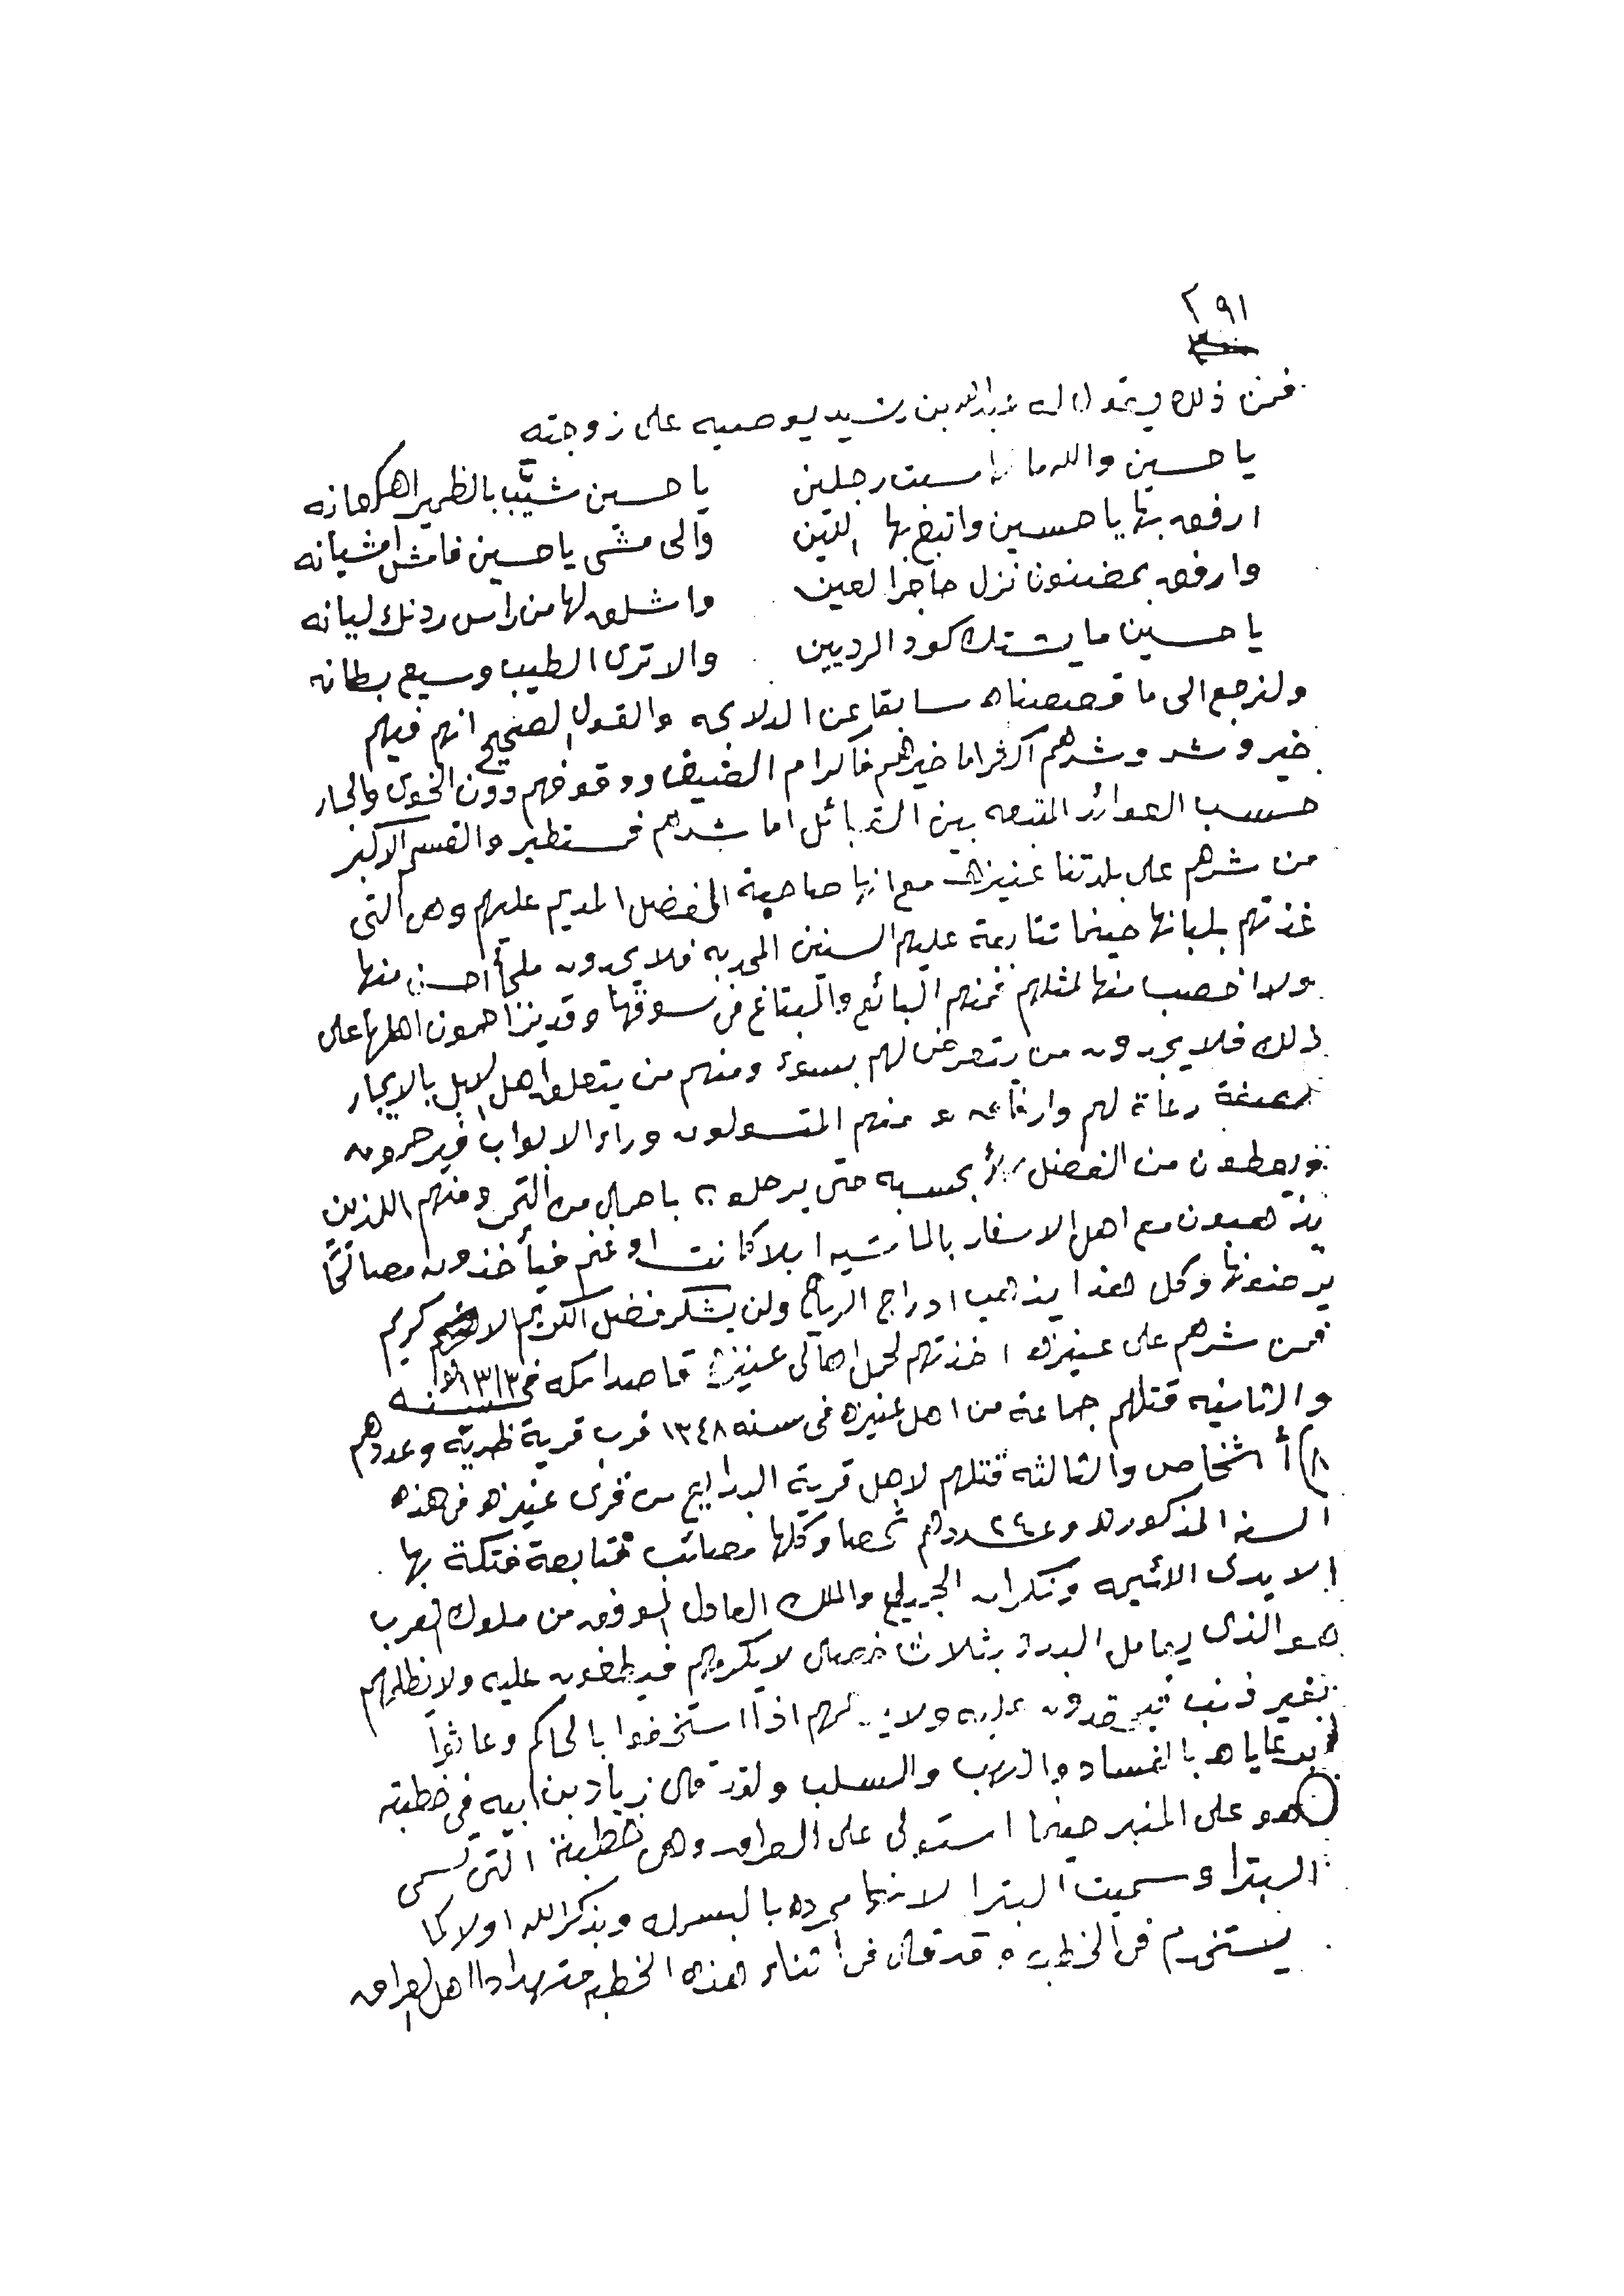 ٢٩١
فمن ذلك ويقول له عبدالله بن رشيد يوصيه على زوجته
يا حسين والله ما لها سبت رجلين يا حسين شيّب بالظمير اهكعانه
ارفق بها يا حسين واتبع بها اللين والى مشى يا حسين فامش امشيانه
وارفق بمضنون نزل حاجر العين واشلق لها من راس ردنك ليانه
يا حسين ما يشتك كود الرديين والا ترى الطيب وسيع بطانه
ولنرجع الى ما قصصناه سابقا عن الدلابحه والقول الصحيح انهم فيهم
خير وشر وشرهم اكثر اما خيرهم فاكرام الضيف ووقوفهم دون الخوى والجار
حسب العوائد المتبعه بين القبائل اما شرهم فمستطير والقسم الاكبر
من شرهم على بلدتنا عنيزه مع انها صاحبة الفضل المديم عليهم وهي التي
غذتهم بلبانها حينما تتابعة عليهم السنين المجدبه فلا يجدون ملجأ احسن منها
ولا اخصب منها لمثلهم فمنهم البائع والمبتاع في سوقها وقد يتزاحمون اهلها على
ذلك فلا يجدون من يتعرض لهم بسوء ومنهم من يتعلق اهل الابل بالايجار
رعاة لهم وارقاعه ومنهم المتسولون وراء الابواب فيرحمون
ويعطون من الفضل بحسبه حتى يرحلون باحمال من التمر ومنهم اللذين
يذهبون مع اهل الاسفار بالماشيه ابلا كانت او غنم فيأخذون مصالحًا
يرضونها وكل هذا يذهب ادراج الرياح ولن يشكر فضل الكريم الا كريم
فمن شرهم على عنيزه اخذتهم لحمل اهالى عنيزة قاصدا مكه في سنه
والثانيه قتلهم جماعة من اهل عنيزه في سنه ١٣٤٨ قرب قرية ظهريّه وعددهم
(٨) أشخاص والثالثه قتلهم لاهل قرية البدايع من قرى عنيزه في هذه
السنه المذكوره وعددهم ٢٤ شخصا وكلها مصائب متتابعة فتكة بها
الايدى الاثيمه ونكران الجميل والملك العادل الموفق من ملوك العرب
هو الذى يعامل البدو بثلاث خصال لا يكرمهم فيطغون عليه ولا يظلمهم
بغير ذنب فيحقدون عليه ولا لهم اذا استخفوا بالحاكم وعاثوا
برعاياه بالفساد والنهب والسلب ولقد قال زياد بن ابيه في خطبته
وهو على المنبر حينما استولى على العراق وهي خطبة التي تسمى
البترا وسميت البترا لانها مجرده بالبسمله وبذكر الله اولا كما
يستخدم في الخطب وقد قال في اثناء هذه الخطبه متهددا اهل العراق